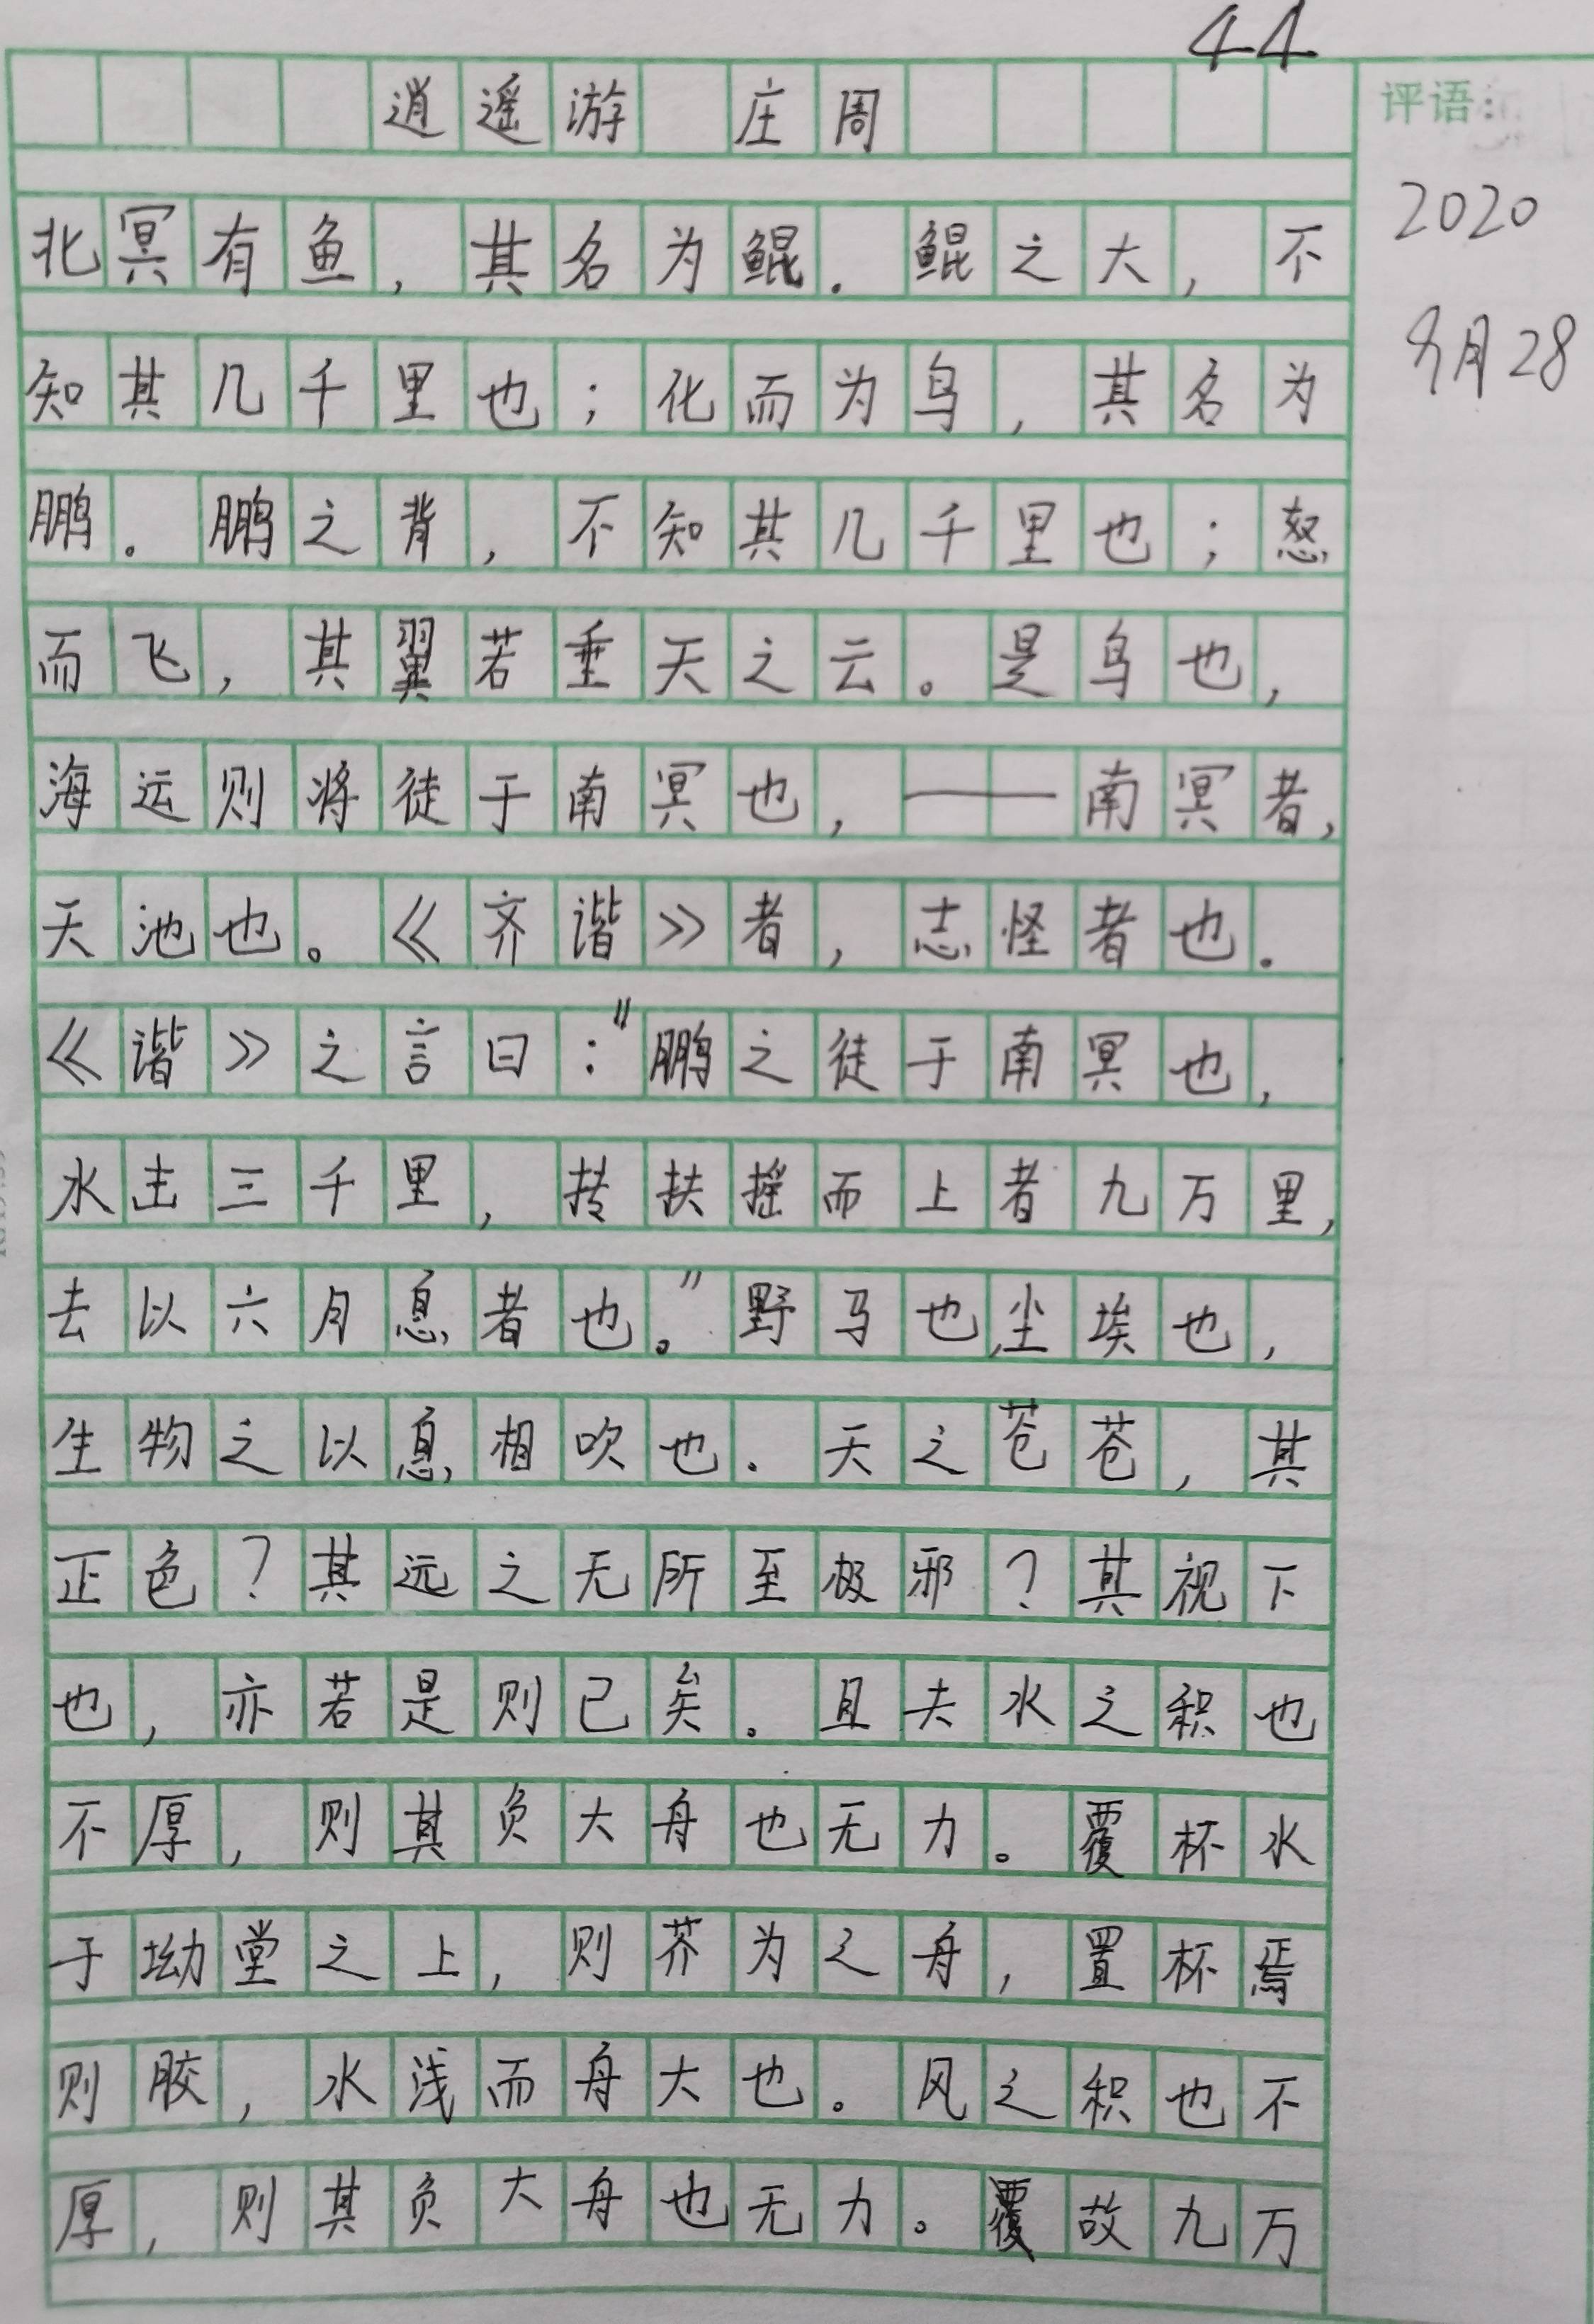 44
逍遥游 庄周
评语:
2020
9月28
北冥有鱼，其名为鲲．鲲之大，不
知其几千里也；化而为鸟，其名为
鹏。鹏之背，不知其几千里也；怒
而飞，其翼若垂天之云。是鸟也，
海运则将徒于南冥也，——南冥者，
天池也。《齐谐》者，志怪者也．
《谐》之言曰："鹏之徒于南冥也，
水击三千里，抟扶摇而上者九万里，
去以六月息者也。"野马也，尘埃也，
生物之以息相吹也．天之苍苍，其
正色？其远之无所至极邪？其视下
也，亦若是则已矣。且夫水之积也
不厚，则其负大舟也无力。覆杯水
于坳堂之上，则芥为之舟，置杯焉
则胶，水浅而舟大也。风之积也不
厚，则其负大舟也无力。故九万